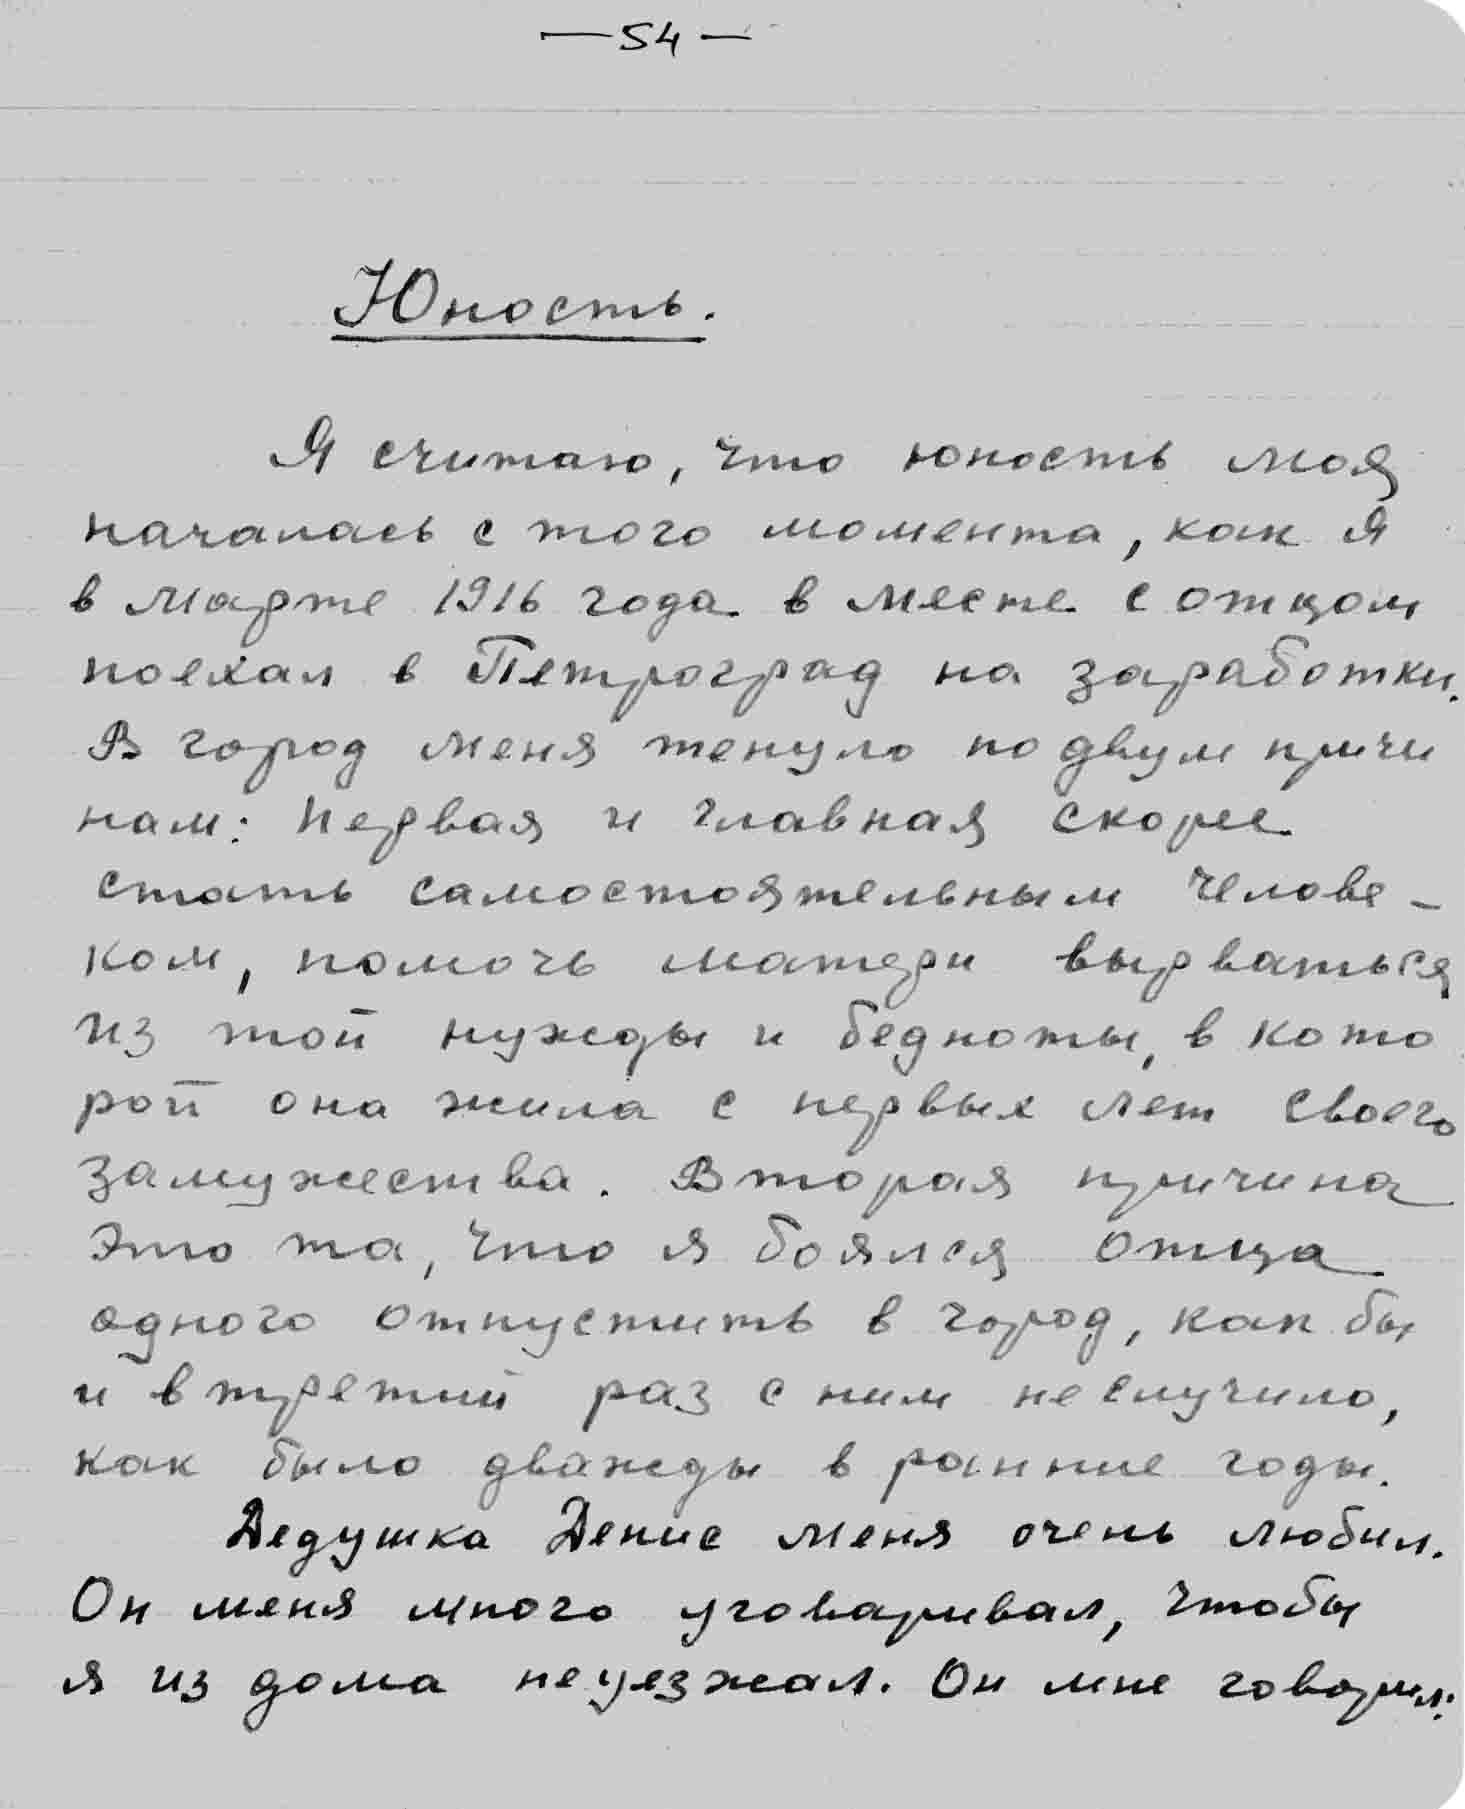 — 54 —
Юность.
Я считаю, что юность моя
началась с того момента, как я
в марте 1916 года в месте с отцом
поехал в Петроград на заработки.
В город меня тенуло по двум причи
нам: Первая и главная скорее
стать самостоятельным челове -
ком, помочь матери вырваться
из той нужды и бедноты, в кото
рой она жила с первых лет своего
замужества. Вторая причина
это та, что я боялся отца
одного отпустить в город, как бы
и в третий раз с ним неслучило,
как было дважды в ранние годы.
Дедушка Денис меня очень любил.
Он меня много уговаривал, чтобы
я из дома неуезжал. Он мне говорил: